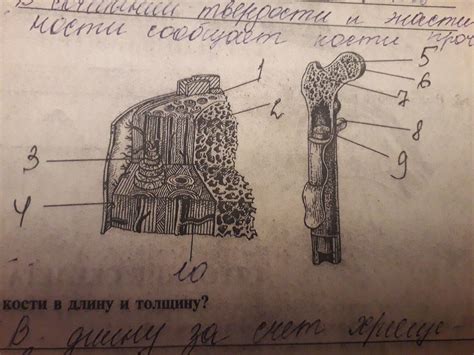 В сочетании твердости и эласти
ности сообщает кости проч
1
2
3
4
5
6
7
8
9
10
кости в длину и толщину?
В длину за счет хряще